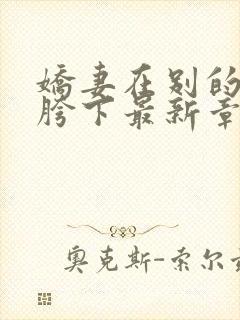 娇妻在别的
胯下最新章
奥克斯-索尔